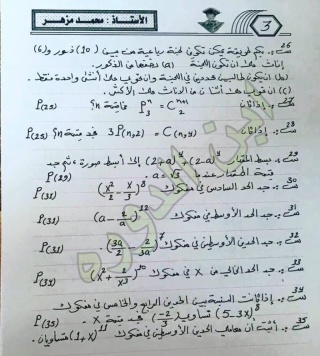 الأستاذ : محمد مزهر
3
س26 بكم طريقة يمكن تكوين لجنة رياضية من بين (10) ذكور و(6)
إناث على ان تكون اللجنة (a) نصفها من الذكور.
(b) ان يكون طالبين محددين في اللجنة وان تحوي على أنثى واحدة فقط.
(c) ان تحوي على أثنان من الاناث على الأكثر.
س27 إذا كان P₃ⁿ = C₂ⁿ⁺² فما قيمة n؟ P(25)
س28 إذا كان 3P(n,2) = C(n,4) فجد قيمة n؟ P(25)
س29 بسط المقدار (2+a)⁴ (2-a)⁴ إلى أبسط صورة، ثم جد
قيمة المقدار عندما a=√3 . P(29)
س30 جد الحد السادس في مفكوك (x²/2 - x/3)⁸ P(31)
س31 جد الحد الأوسط في مفكوك (a - 2/a)¹² P(31)
س32 جد الحدين الأوسطين في مفكوك (3a/2 - 2/3a)⁷ P(32)
س33 جد الحد الخالي من x في مفكوك (x² + 2/x³)¹⁰ P(34)
س34 إذا كانت النسبة بين الحدين الرابع والخامس في مفكوك
(5-3x)⁸ تساوي (-2/3) فجد قيمة x . P(35)
س35 أثبت أن معاملي الحدين الأوسطين في مفكوك (1+x)¹¹ متساويان.
ابن الدوره